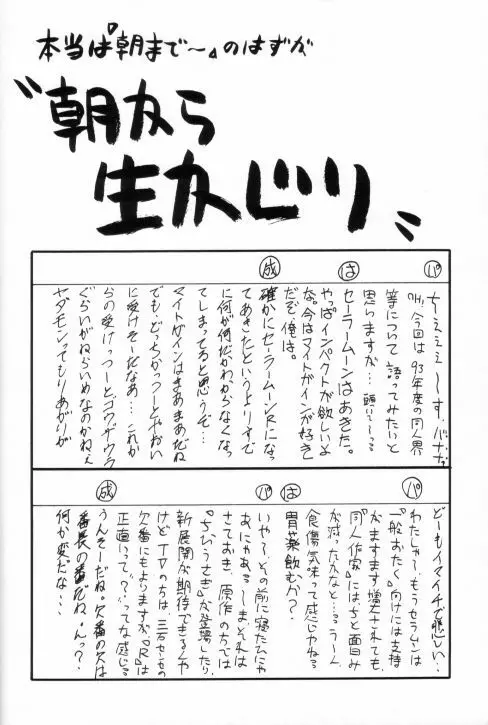 本当は『朝まで〜』のはずが
〝朝から
生かじり〟
パ
ちぇぇぇ〜す。バナナ
「H」今回は93年度の同人界
等について語ってみたいと
思いますが…
は
セーラームーンはあきた。
やっぱインパクトが欲しいよ
な。今はマイトガインが好き
だぞ、俺は。
成
確かにセーラームーンRになっ
てあきたというよりすで
に何が何だかわからなくなっ
てしまってると思うぞ…
マイトガインはまあまあだね
でも、どっちかっつーとやおい
に受けそーだなあ…これか
らの受けっつーとゴウザウラ
ぐらいがねらいめなのかねぇ
ヤダモンってもりあがりが
パ
どーもイマイチで悲しい…
わたしゃ〜もうセラムンは
「一般おたく」向けには支持
がますます増大されても、
「同人作家」にはちと面白み
が減ったかなと…う〜ん、
食傷気味って感じかねる
は
胃薬飲むか？
パ
いや〜、その前に寝たひにゃ
あ、にゃあ、しまそれは
さておき、原作の方では
『ちびうさぎ』が登場したり、
新展開が期待できるんや
けどTVのちは、三石セーもの
欠番にもよりますが、『R』は
正直いって？？ってな感じる
成
うんそーだね。欠番の欠は
番長の番だね。んっ？
何か変だな…